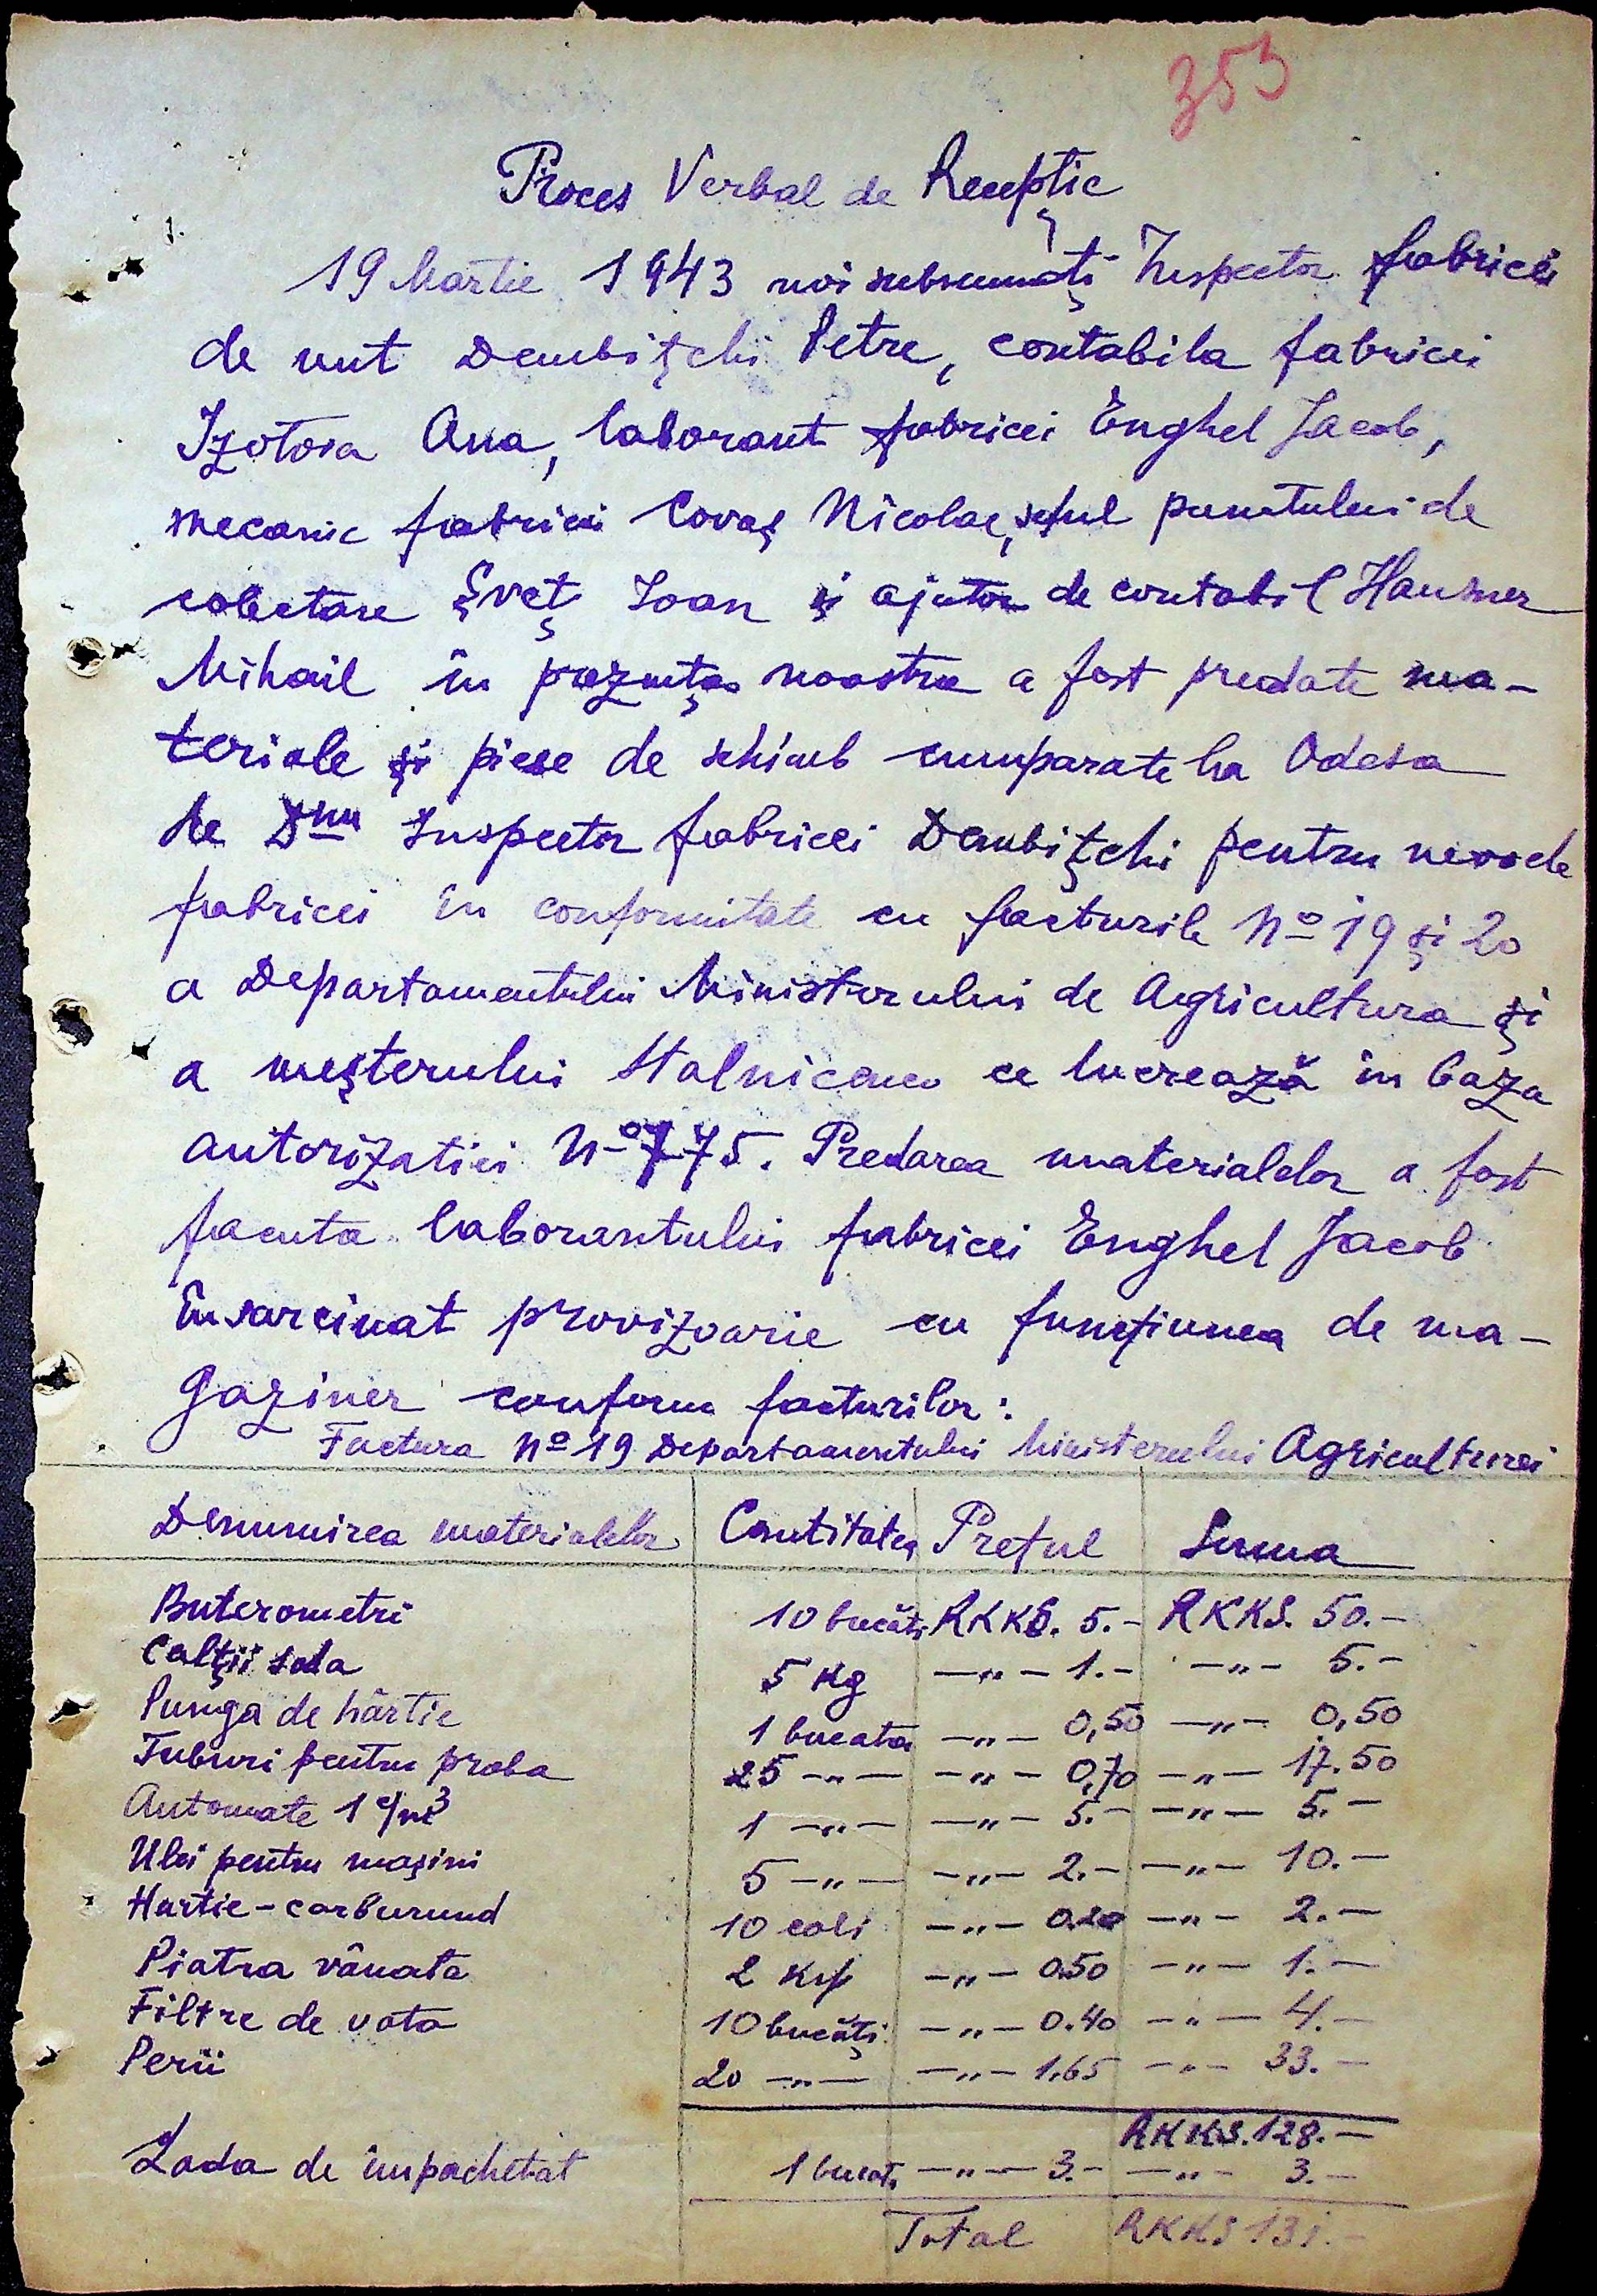 353
Proces Verbal de Recepție
19 Martie 1943 noi subsemnați Inspector fabricii
de unt Dembițchi Petre, contabila fabricii
Izotova Ana, laborant fabricei Enghel Jacob,
mecanic fabricei Covaș Nicolae, șeful punctului de
colectare Șveț Ioan și ajutor de contabil Hausner
Mihail în prezența noastra a fost predate ma-
teriale și piese de schimb cumparate la Odesa
de Dnu Inspector fabricei Dembițchi pentru nevoele
fabricei în conformitate cu facturile No 19 și 20
a Departamentului Ministerului de Agricultura și
a meșterului Stalnicenco ce lucrează în baza
autorizatiei No 775. Predarea materialelor a fost
facuta laborantului fabricei Enghel Jacob
însarcinat provizoarie cu funcțiunea de ma-
gaziner conform facturilor:
Factura No 19 Departamentului Ministerului Agriculturei
Denumirea materialelor Cantitatea Prețul Suma
Buterometri 10 bucăți RKKS. 5.- RKKS. 50.-
Calții soda 5 Kg -"- 1.- -"- 5.-
Punga de hârtie 1 bucata -"- 0,50 -"- 0,50
Tuburi pentru proba 25 -"- -"- 0,70 -"- 17.50
Automate 1 c/m3 1 -"- -"- 5.- -"- 5.-
Ulei pentru mașini 5 -"- -"- 2.- -"- 10.-
Hartie-carburund 10 coli -"- 0.20 -"- 2.-
Piatra vânata 2 -"- 0.50 -"- 1.-
Filtre de vata 10 bucăți -"- 0.40 -"- 4.-
Perii 20 -"- -"- 1.65 -"- 33.-
RKKS. 128.-
Lada de împachetat 1 bucată -"- 3.- -"- 3.-
Total RKKS 131.-